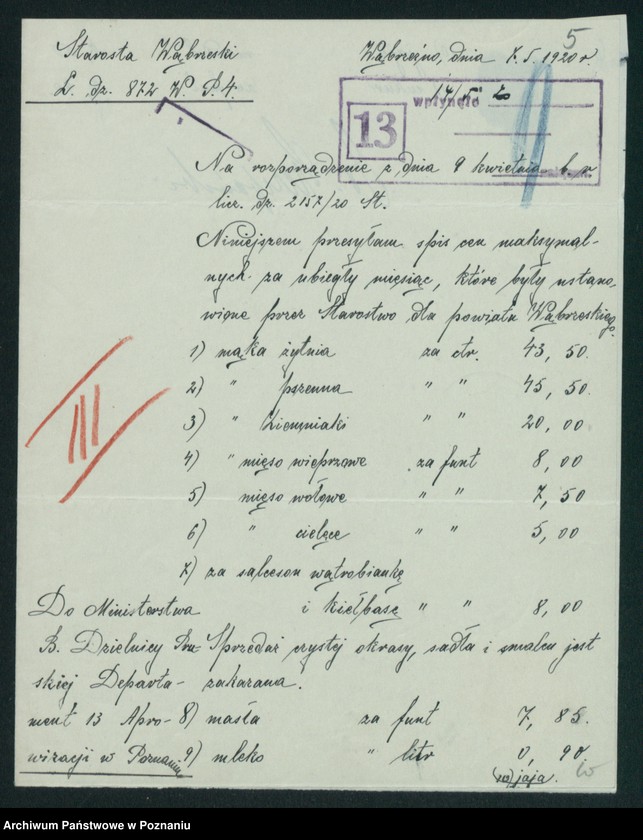 5
Starosta Wąbrzeski
L. dz. 872 W. P. 4.
Wąbrzeźno, dnia 7.5.1920 r.
13
wpłynęło 14/5
Na rozporządzenie z dnia 9 kwietnia b. r
licz. dz. 2157/20 St.
Niniejszem przesyłam spis cen maksymal-
nych za ubiegły miesiąc, które były ustano-
wione przez Starostwo dla powiatu Wąbrzeskiego.
1) mąka żytnia za ctr. 43, 50.
2) " pszenna " " 45, 50.
3) " Ziemniaki " " 20, 00
4) " mięso wieprzowe za funt 8, 00
5) mięso wołowe " " 7, 50
6) " cielęce " " 5, 00
7) za salceson wątrobiankę
i kiełbasę " " 8, 00
Sprzedaż czystej okrasy, sadła i smalcu jest
zakazana.
8) masła za funt 7, 85.
9) mleko " litr 0, 90.
(10) jaja.
Do Ministerstwa
B. Dzielnicy Pru-
skiej Departa-
ment 13 Apro-
wizacji w Poznaniu
III
Archiwum Państwowe w Poznaniu